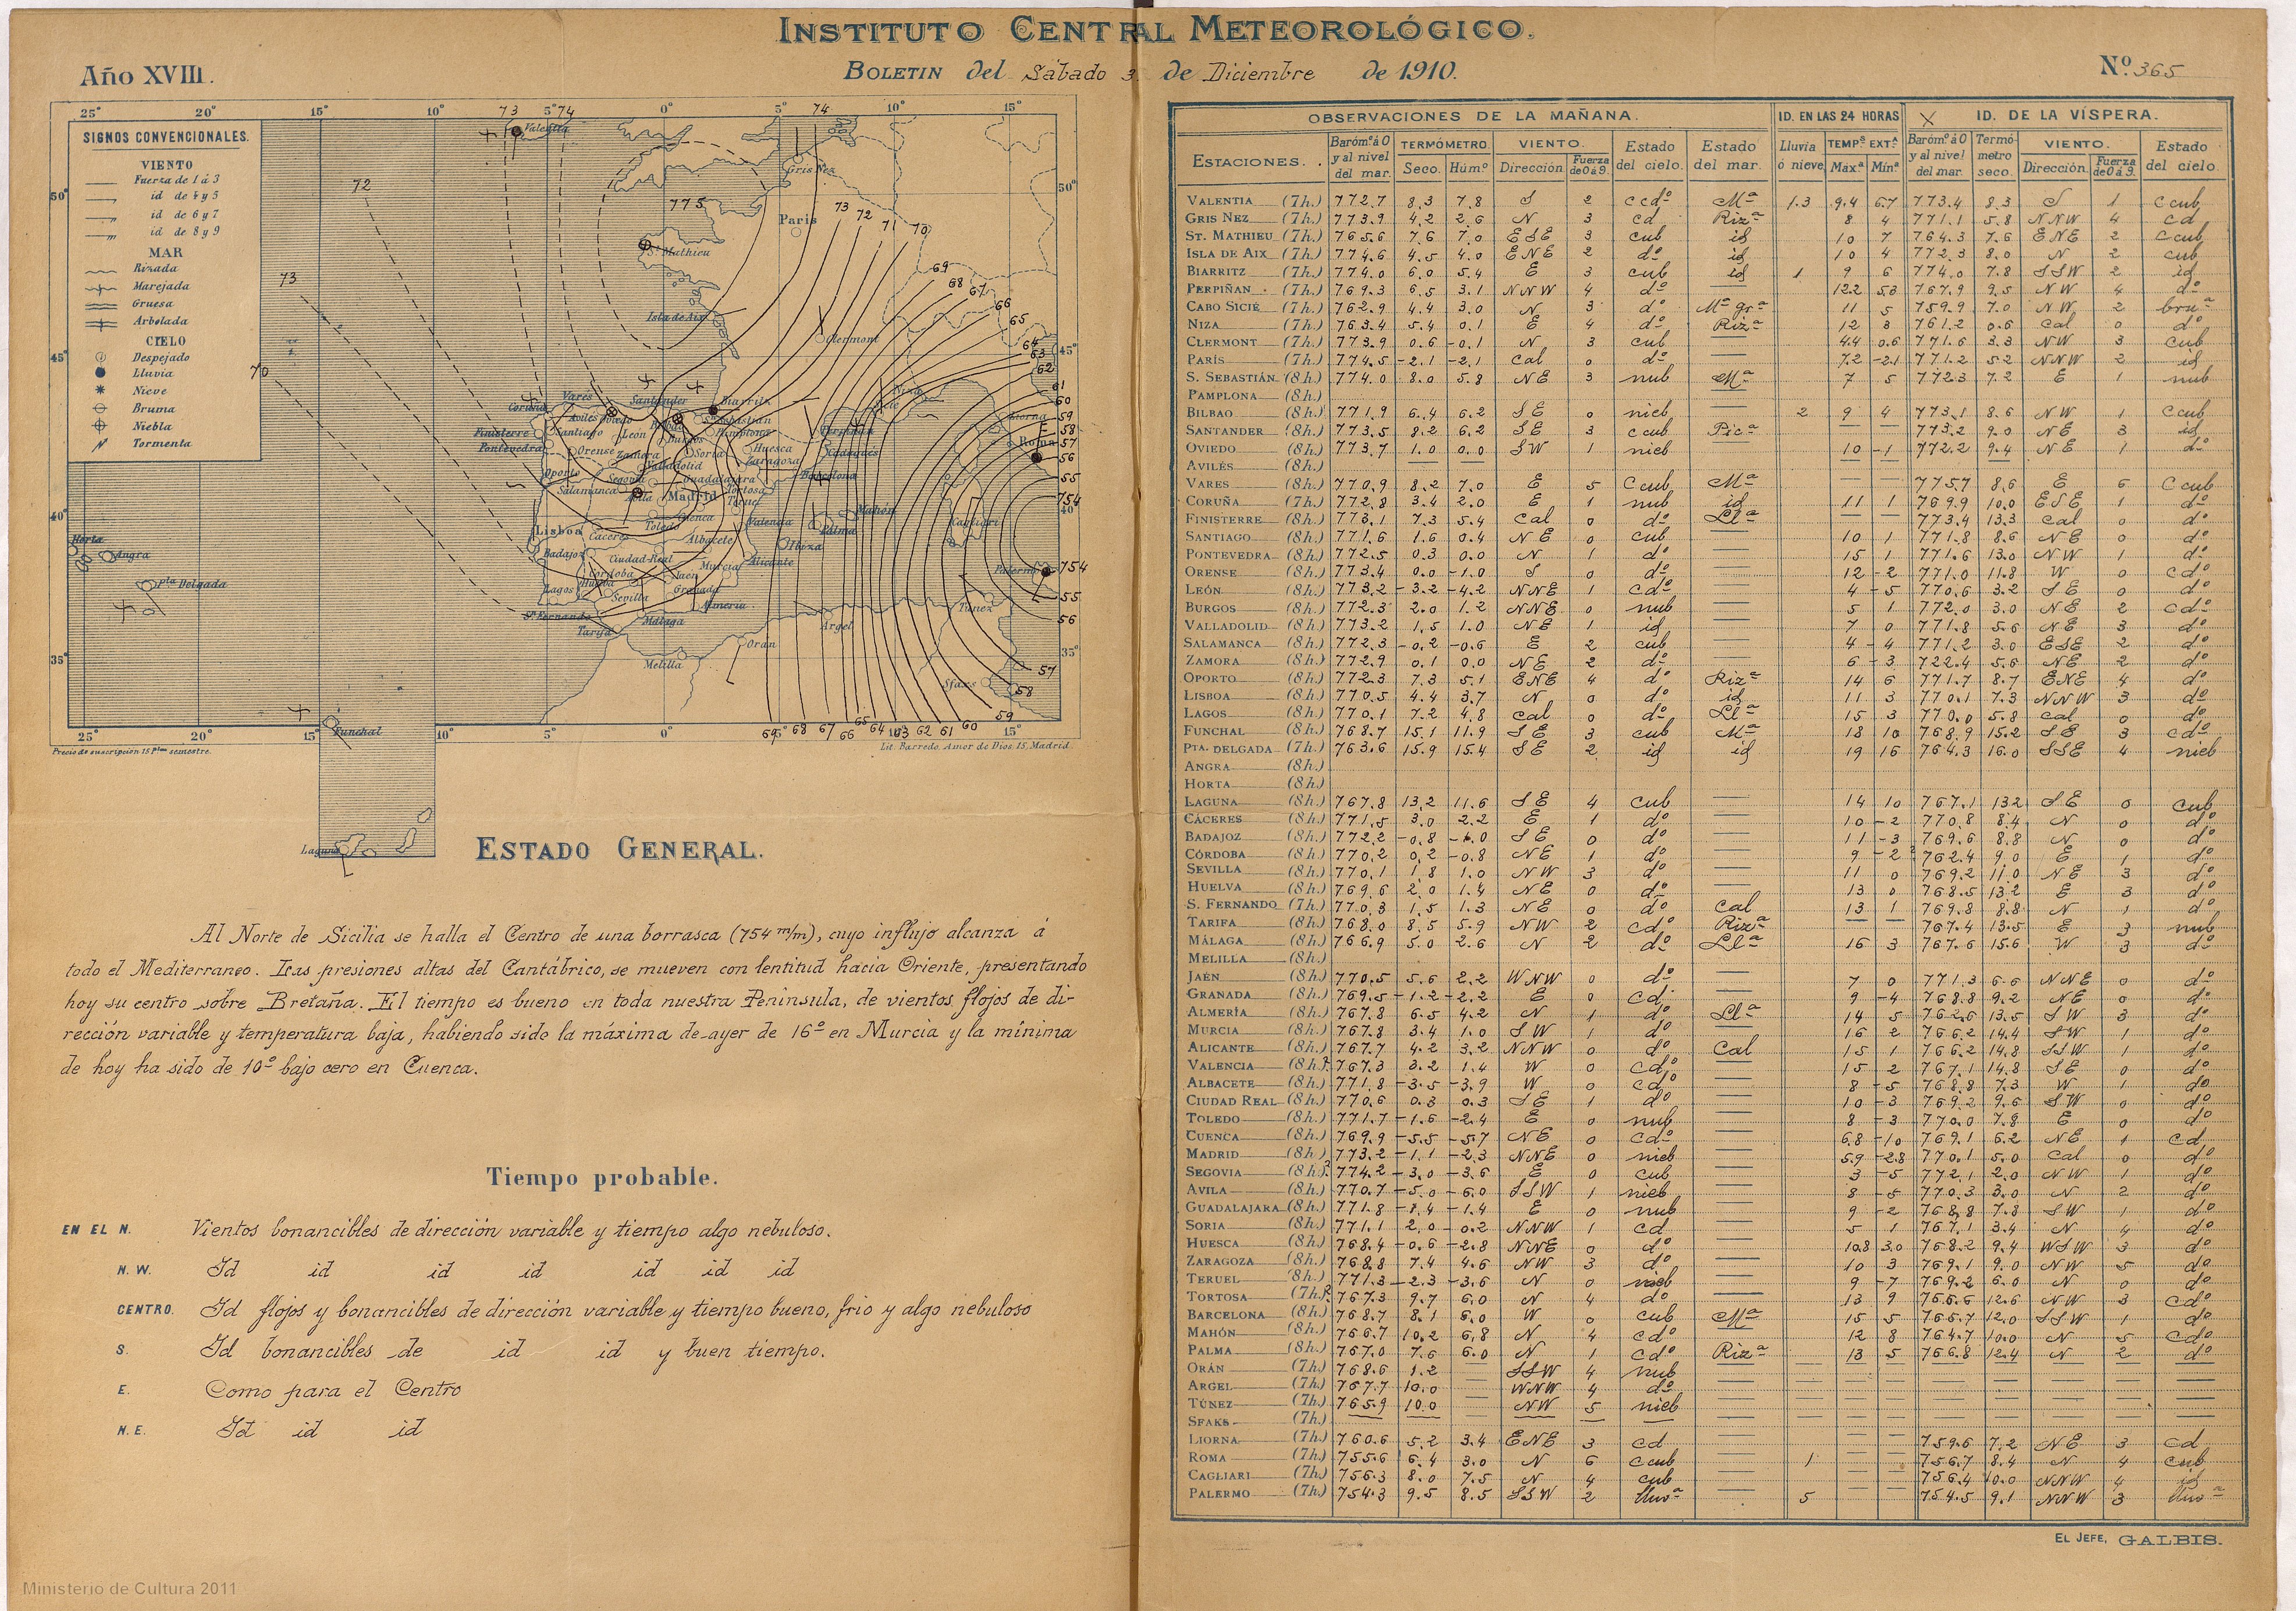 INSTITUTO CENTRAL METEOROLÓGICO.
Año XVIII.
BOLETIN del Sábado 3 de Diciembre de 1910.
Nº 365
SIGNOS CONVENCIONALES.
VIENTO
Fuerza de 1 á 3
id de 4 y 5
id de 6 y 7
id de 8 y 9
MAR
Rizada
Marejada
Gruesa
Arbolada
CIELO
Despejado
Lluvia
Nieve
Bruma
Niebla
Tormenta
Precio de suscripción 15 Ptas semestre.
Lit. Barredo, Amor de Dios 15, Madrid.
ESTADO GENERAL.
Al Norte de Sicilia se halla el Centro de una borrasca (754 m/m), cuyo influjo alcanza á
todo el Mediterraneo. Las presiones altas del Cantábrico, se mueven con lentitud hacia Oriente, presentando
hoy su centro sobre Bretaña. El tiempo es bueno en toda nuestra Peninsula, de vientos flojos de di-
rección variable y temperatura baja, habiendo sido la máxima de ayer de 16º en Murcia y la mínima
de hoy ha sido de 10º bajo cero en Cuenca.
Tiempo probable.
EN EL N. Vientos bonancibles de dirección variable y tiempo algo nebuloso.
N. W. Id id id id id id id
CENTRO. Id flojos y bonancibles de dirección variable y tiempo bueno, frio y algo nebuloso
S. Id bonancibles de id id y buen tiempo.
E. Como para el Centro
N. E. Id id id
OBSERVACIONES DE LA MAÑANA. ID. EN LAS 24 HORAS ID. DE LA VÍSPERA.
ESTACIONES. Baróm.º á 0 y al nivel del mar. TERMÓMETRO. Seco. Húm.º VIENTO. Dirección Fuerza de 0 á 9. Estado del cielo. Estado del mar. Lluvia ó nieve TEMPS EXTS Maxª Mínª Baróm.º á 0 y al nivel del mar. Termómetro seco. VIENTO. Dirección Fuerza de 0 á 9. Estado del cielo.
VALENTIA (7h.) 772.7 8.3 7.8 S 2 c cdº Mª 1.3 9.4 6.7 773.4 8.3 S 1 C cub
GRIS NEZ (7h.) 773.9 4.2 2.6 N 3 cd Rizª 8 4 771.1 5.8 NNW 4 cd
ST. MATHIEU (7h.) 765.6 7.6 7.0 ESE 3 cub id 10 7 764.3 7.6 ENE 2 C cub
ISLA DE AIX (7h.) 774.6 4.5 4.0 ENE 2 dº id 10 4 772.3 8.0 N 2 cub
BIARRITZ (7h.) 774.0 6.0 5.4 E 3 cub id 1 9 6 774.0 7.8 SSW 2 id
PERPIÑAN (7h.) 769.3 6.5 3.1 NNW 4 dº — 12.2 5.8 767.9 9.5 NW 4 dº
CABO SICIÉ (7h.) 762.9 4.4 3.0 N 3 dº Mª grª 11 5 759.9 7.0 NW 2 bruª
NIZA (7h.) 763.4 5.4 0.1 E 4 dº Rizª 12 8 761.2 0.6 Cal 0 dº
CLERMONT (7h.) 773.9 0.6 -0.1 N 3 cub — 4.4 0.6 771.6 3.3 NW 3 cub
PARÍS (7h.) 774.5 -2.1 -2.1 Cal 0 dº — 7.2 -2.1 771.2 5.2 NNW 2 id
S. SEBASTIÁN (8h.) 774.0 8.0 5.8 NE 3 nub Mª 7 5 772.3 7.2 E 1 nub
PAMPLONA (8h.)
BILBAO (8h.) 771.9 6.4 6.2 SE 0 nieb — 2 9 4 773.1 8.6 NW 1 C cub
SANTANDER (8h.) 773.5 8.2 6.2 SE 3 c cub Picª — — 773.2 9.0 NE 3 id
OVIEDO (8h.) 773.7 1.0 0.0 SW 1 nieb 10 -1 772.2 9.4 NE 1 dº
AVILÉS (8h.)
VARES (8h.) 770.9 8.2 7.0 E 5 C cub Mª — — 775.7 8.6 E 6 C cub
CORUÑA (7h.) 772.8 3.4 2.0 E 1 nub id 11 1 769.9 10.0 ESE 1 dº
FINISTERRE (8h.) 773.1 7.3 5.4 Cal 0 dº Llª — — 773.4 13.3 Cal 0 dº
SANTIAGO (8h.) 771.6 1.6 0.4 NE 0 cub — 10 1 771.8 8.6 NE 0 dº
PONTEVEDRA (8h.) 772.5 0.3 0.0 N 1 dº — 15 1 771.6 13.0 NW 1 dº
ORENSE (8h.) 773.4 0.0 -1.0 S 0 dº — 12 -2 771.0 11.8 W 0 cdº
LEÓN (8h.) 773.2 -3.2 -4.2 NNE 1 cdº — 4 -5 770.6 3.2 SE 0 dº
BURGOS (8h.) 772.3 2.0 1.2 NNE 0 nub — 5 1 772.0 3.0 NE 2 cdº
VALLADOLID (8h.) 773.2 1.5 1.0 NE 1 id — 7 0 771.8 5.6 NE 3 dº
SALAMANCA (8h.) 772.3 -0.2 -0.6 E 2 cub — 4 -4 771.2 3.0 ESE 2 dº
ZAMORA (8h.) 772.9 0.1 0.0 NE 2 dº — 6 -3 722.4 5.6 NE 2 dº
OPORTO (8h.) 772.3 7.3 5.1 ENE 4 dº Rizª 14 6 771.7 8.7 ENE 4 dº
LISBOA (8h.) 770.5 4.4 3.7 N 0 dº id 11 3 770.1 7.3 NNW 3 dº
LAGOS (8h.) 770.1 7.2 4.8 Cal 0 dº Llª 15 3 770.0 5.8 Cal 0 dº
FUNCHAL (8h.) 768.7 15.1 11.9 SE 3 cub Mª 18 10 768.9 15.2 SE 3 cdº
PTA. DELGADA (7h.) 763.6 15.9 15.4 SE 2 id id 19 16 764.3 16.0 SSE 4 nieb
ANGRA (8h.)
HORTA (8h.)
LAGUNA (8h.) 767.8 13.2 11.6 SE 4 cub — 14 10 767.1 13.2 SE 0 cub
CÁCERES (8h.) 771.5 3.0 2.2 E 1 dº — 10 -2 770.8 8.4 N 0 dº
BADAJOZ (8h.) 772.2 -0.8 SE 0 dº — 11 -3 769.6 8.8 N 0 dº
CÓRDOBA (8h.) 770.2 0.2 -0.8 NE 1 dº — 9 -2 762.4 9.0 E 1 dº
SEVILLA (8h.) 770.1 1.8 1.0 NW 3 dº — 11 0 769.2 11.0 NE 3 dº
HUELVA (8h.) 769.6 2.0 1.4 NE 0 dº — 13 0 768.5 13.2 E 3 dº
S. FERNANDO (7h.) 770.3 1.5 1.3 NE 0 dº Cal 13 1 769.8 8.8 N 1 dº
TARIFA (8h.) 768.0 8.5 5.9 NW 2 cd Rizª — — 767.4 13.5 E 3 nub
MÁLAGA (8h.) 766.9 5.0 2.6 N 2 dº Llª 16 3 767.6 15.6 W 3 dº
MELILLA (8h.)
JAÉN (8h.) 770.5 5.6 2.2 WNW 0 dº — 7 0 771.3 6.6 NNE 0 dº
GRANADA (8h.) 769.5 -1.2 -2.2 E 0 cd — 9 -4 768.8 9.2 NE 0 dº
ALMERÍA (8h.) 767.8 6.5 4.2 N 1 dº Llª 14 5 762.6 13.5 SW 3 dº
MURCIA (8h.) 767.8 3.4 1.0 SW 1 dº — 16 2 766.2 14.4 SW 1 dº
ALICANTE (8h.) 767.7 4.2 3.2 NNW 0 dº Cal 15 1 766.2 14.8 SSW 1 dº
VALENCIA (8h.) 767.3 3.2 1.4 W 0 cdº — 15 2 767.1 14.8 SE 0 dº
ALBACETE (8h.) 771.8 -3.5 -3.9 W 0 cdº — 8 -5 768.8 7.3 W 1 dº
CIUDAD REAL (8h.) 770.6 0.3 0.3 SE 1 dº — 10 -3 769.2 9.6 SW 0 dº
TOLEDO (8h.) 771.7 -1.6 -2.4 E 0 nub — 8 -3 770.0 7.8 E 0 dº
CUENCA (8h.) 769.9 -5.5 -5.7 NE 0 cdº — 6.8 -10 769.1 6.2 NE 1 cd
MADRID (8h.) 773.2 -1.1 -2.3 NNE 0 nieb — 5.9 -2.8 770.1 5.0 Cal 0 dº
SEGOVIA (8h.) 774.2 -3.0 -3.6 E 0 cub — 3 -5 772.1 2.0 NW 1 dº
AVILA (8h.) 770.7 -5.0 -6.0 SSW 1 nieb — 8 -5 770.3 3.0 N 2 dº
GUADALAJARA (8h.) 771.8 -1.4 -1.4 E 0 nub — 9 -2 768.8 7.8 SW 1 dº
SORIA (8h.) 771.1 2.0 -0.2 NNW 1 cd — 5 1 767.1 3.4 N 4 dº
HUESCA (8h.) 768.4 -0.6 -2.8 NNE 0 dº — 10.8 3.0 768.2 9.4 WSW 3 dº
ZARAGOZA (8h.) 768.8 7.4 4.6 NW 3 dº — 10 3 769.1 9.0 NW 5 dº
TERUEL (8h.) 771.3 -2.3 -3.6 N 0 nieb — 9 -7 769.2 6.0 N 0 dº
TORTOSA (7h.) 767.3 9.7 6.0 N 4 dº — 13 9 766.6 12.6 NW 3 cdº
BARCELONA (8h.) 768.7 8.1 6.0 W 0 cub Mª 15 5 766.7 12.0 SSW 1 dº
MAHÓN (8h.) 766.7 10.2 6.8 N 4 cdº — 12 8 764.7 10.0 N 5 cdº
PALMA (8h.) 767.0 7.6 6.0 N 1 cdº Rizª 13 5 766.8 12.4 N 2 dº
ORÁN (7h.) 768.6 1.2 — SSW 4 nub
ARGEL (7h.) 767.7 10.0 — WNW 4 dº
TÚNEZ (7h.) 765.9 10.0 — NW 5 nieb
SFAKS (7h.)
LIORNA (7h.) 760.6 5.2 3.4 ENE 3 cd — 759.6 7.2 NE 3 cd
ROMA (7h.) 755.6 6.4 3.0 N 6 c cub — 1 756.7 8.4 N 4 cub
CAGLIARI (7h.) 756.3 8.0 7.5 N 4 cub — 756.4 10.0 NNW 4 id
PALERMO (7h.) 754.3 9.5 8.5 SSW 2 lluvª — 5 754.5 9.1 NNW 3 lluvª
EL JEFE, GALBIS.
Ministerio de Cultura 2011